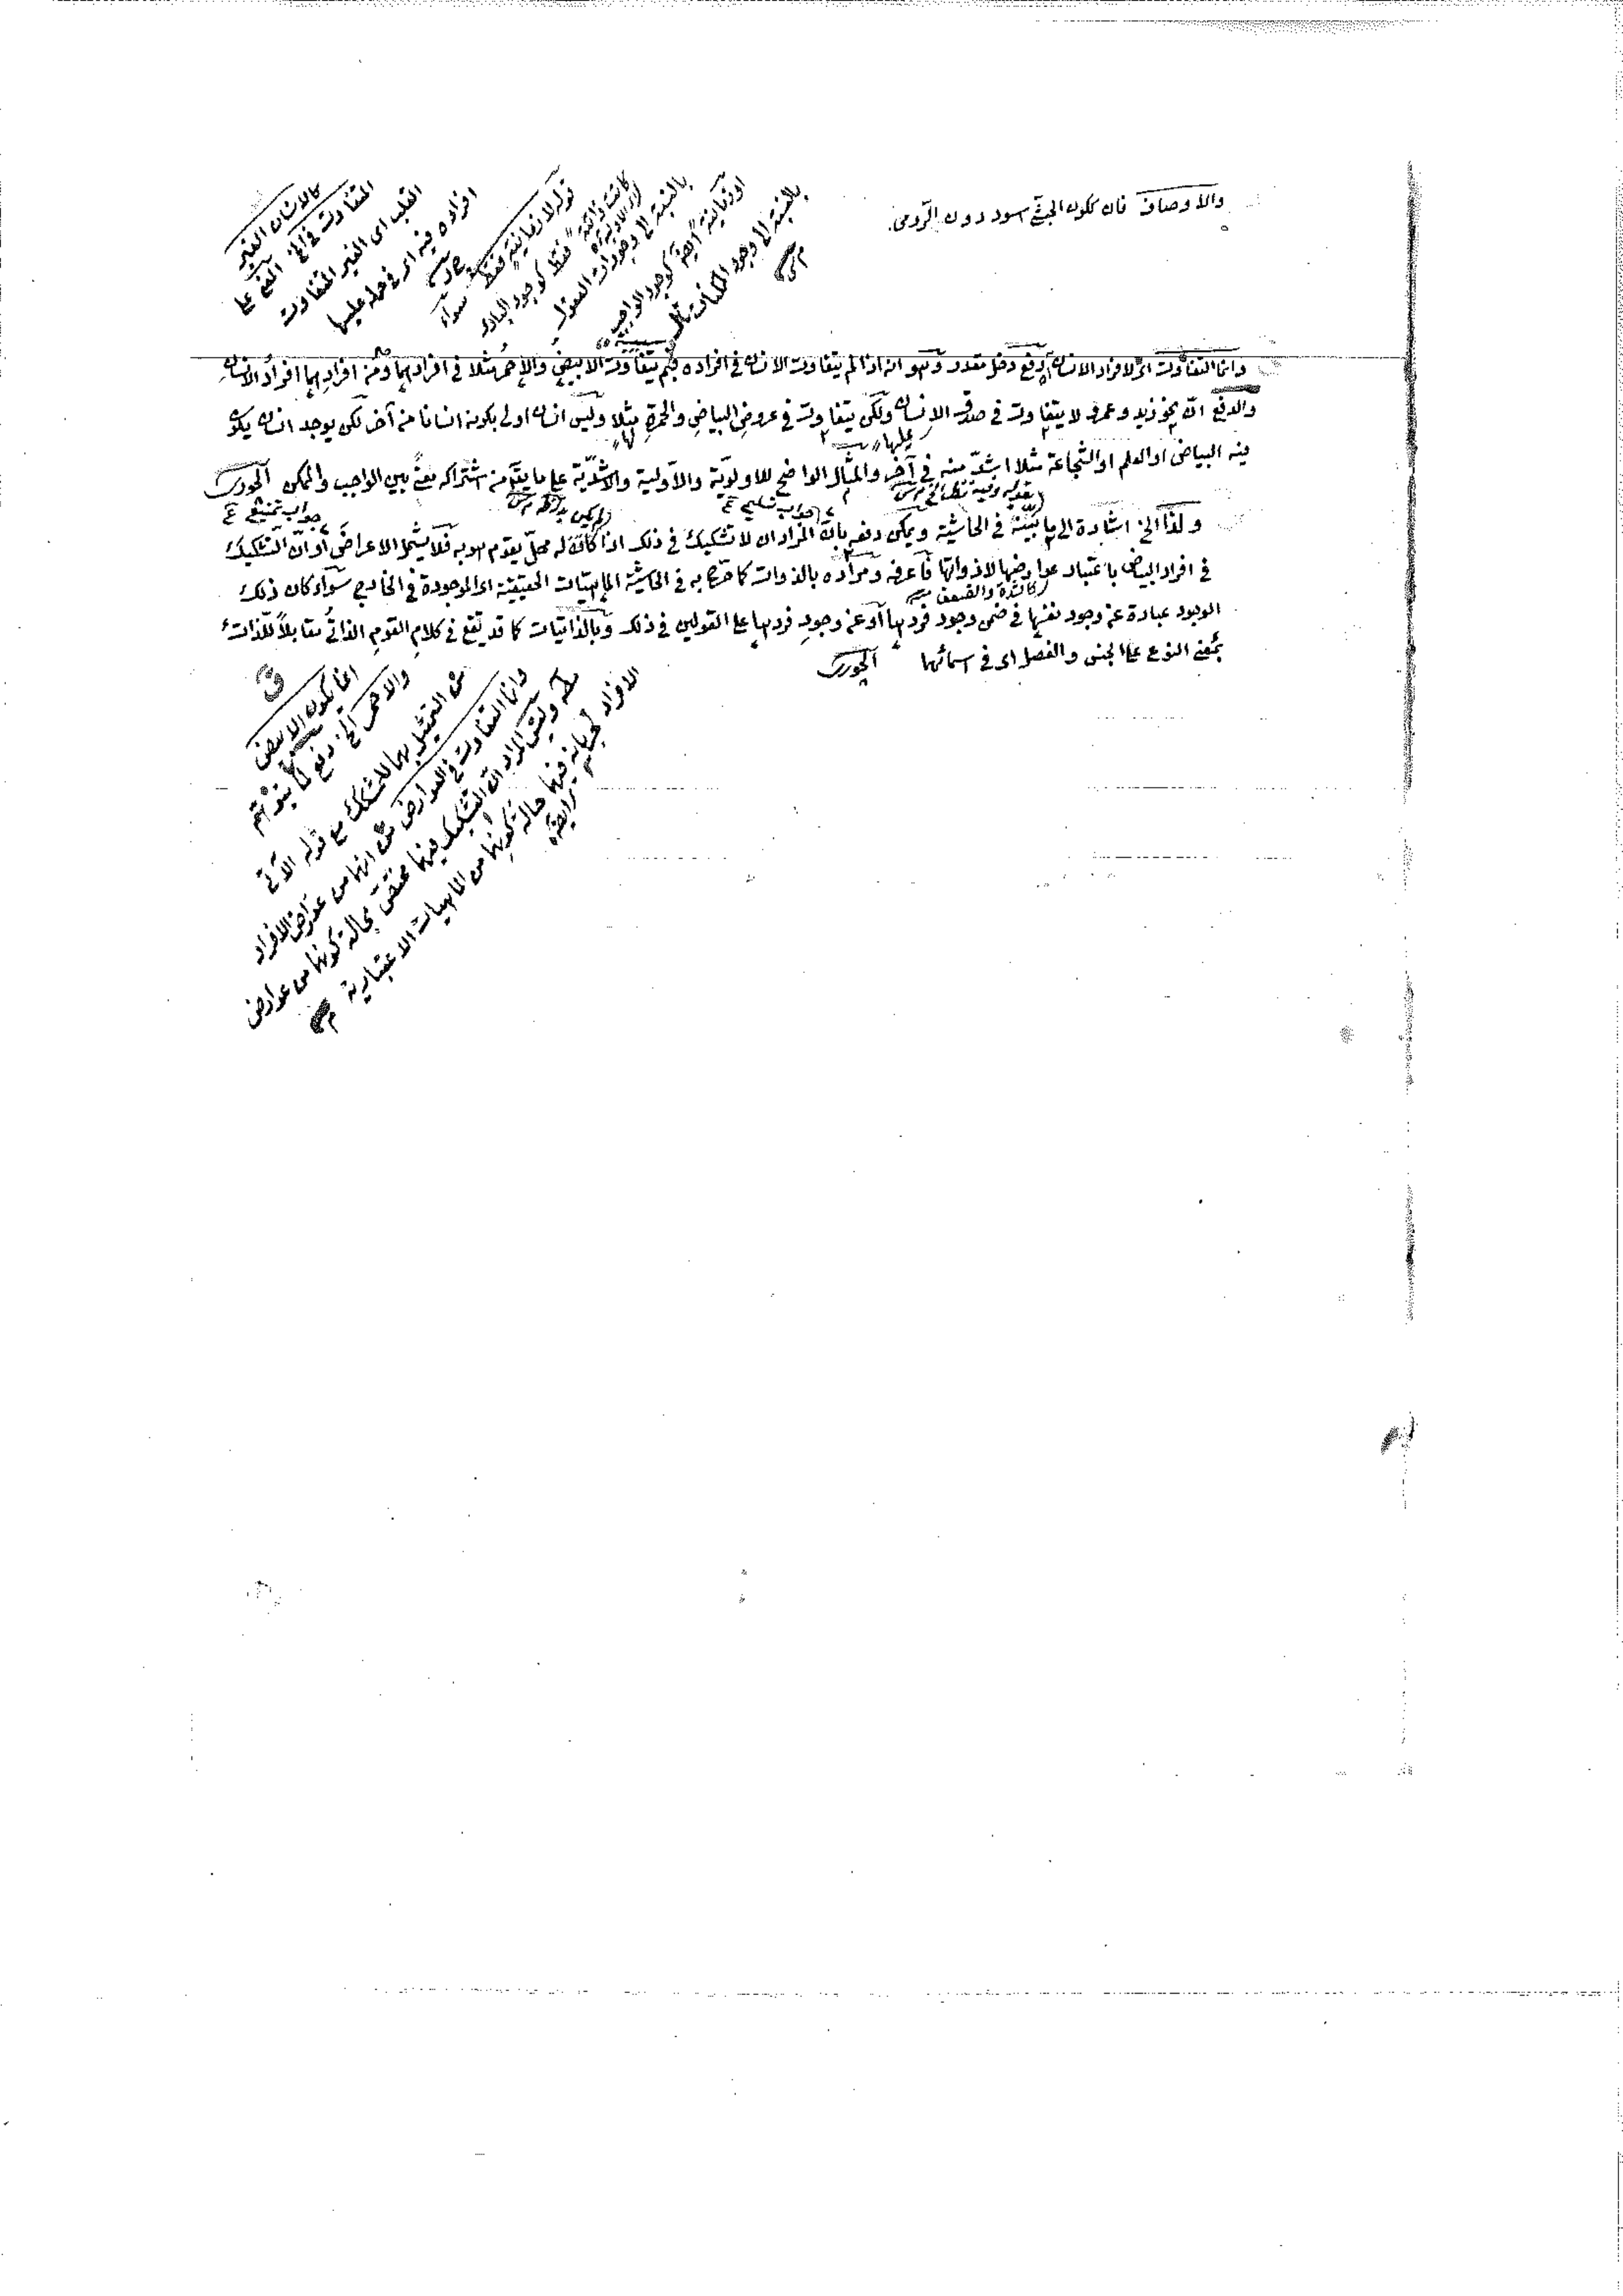 والاوصاف فان كون الحبشي اسود دون الرومي
كالانسان الغير
المتفاوت في الخ النفي على
القلب اى الغير المتفاوت
افراده فيه اى في حمله عليها
قوله لا زمانية فقط سواء
كانت ذاتية فقط كوجود البارى
بالنسبة الى وجودات العقول
او زمانية ايضا كوجود الواجب
بالنسبة الى وجود الممكنات
وانما التفاوت اى لافراد الانسان دفع دخل مقدر وهو انه اذا لم يتفاوت الانسان في افراده فلم يتفاوت الابيض والاحمر مثلا في افرادهما ومن افرادهما افراد الانسان
والدفع ان نحو زيد وعمرو لا يتفاوت في صدق الانسان ولكن يتفاوت في عروض البياض والحمرة مثلا وليس انسان اولى بكونه انسانا من آخر لكن يوجد انسان يكون
عليها
لها
فيه البياض او العلم او الشجاعة مثلا اشد منه في آخر والمثال الواضح للاولوية والاولية والاشدية على ما يقال من اشتراكه معنى بين الواجب والممكن الجورى
جواب تسليمي
جواب
ولذا الخ اشارة الى ما بينه في الحاشية ويمكن دفعه بان المراد ان لا تشكيك في ذلك اذا كان له محل يقوم هو به فلا يشمل الاعراض او ان التشكيك
في افراد البياض باعتبار عوارضها لا ذواتها فاعرفه ومراده بالذوات كما صرح به في الحاشية الماهيات الحقيقية اى الموجودة في الخارج سواء كان ذلك
كالشدة والضعف
الوجود عبارة عن وجود نفسها في ضمن وجود فردها او عن وجود فردها على القولين في ذلك وبالذاتيات كما قد يقع في كلام القوم الذاتي مقابلا للذات
بمعنى النوع على الجنس والفصل اى في اسمائها الجورى
انما يكون الابيض
والاحمر الخ دفع لما يتوهم
من التمثيل بهما للمشكك مع قوله الآتي
وانما التفاوت في العوارض من انها من عوارض الافراد
وليس المراد ان التشكيك فيها مختص بحالة كونها من عوارض
الافراد لجريانه فيها حالة كونها من الماهيات الاعتبارية
ايضا